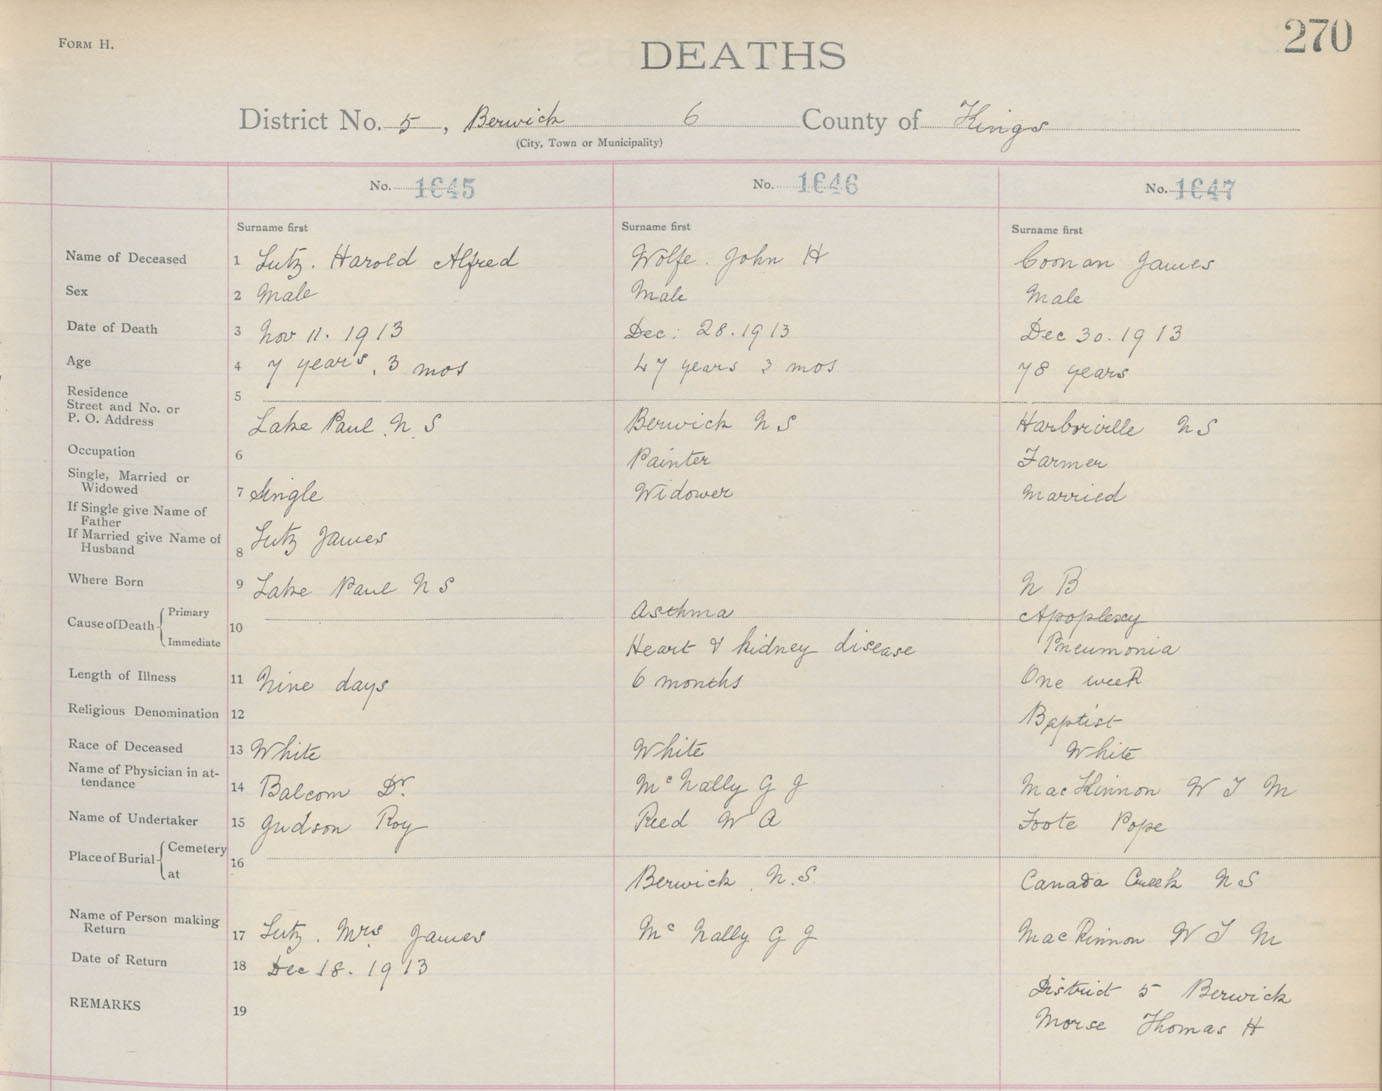 FORM H.
270
DEATHS
District No. 5, Berwick 6 County of Kings
(City, Town or Municipality)
No. 1645 No. 1646 No. 1647
Surname first Surname first Surname first
Name of Deceased 1 Lutz. Harold Alfred Wolfe. John H Coonan James
Sex 2 Male Male Male
Date of Death 3 Nov 11. 1913 Dec: 28. 1913 Dec 30. 1913
Age 4 7 years, 3 mos 47 years 3 mos 78 years
Residence 5
Street and No. or
P. O. Address Lake Paul N S Berwick N S Harborville N S
Occupation 6 Painter Farmer
Single, Married or
Widowed 7 Single Widower Married
If Single give Name of
Father
If Married give Name of
Husband 8 Lutz James
Where Born 9 Lake Paul N S N B
Cause of Death 10 Primary Asthma Apoplexy
Immediate Heart & kidney disease Pneumonia
Length of Illness 11 Nine days 6 months One week
Religious Denomination 12 Baptist
Race of Deceased 13 White White White
Name of Physician in at-
tendance 14 Balcom Dr. McNally G J MacKinnon W T M
Name of Undertaker 15 Judson Roy Reed W A Foote Pope
Place of Burial 16 Cemetery
at Berwick, N.S. Canada Creek N S
Name of Person making
Return 17 Lutz. Mrs James McNally G J MacKinnon W T M
Date of Return 18 Dec 18. 1913
District 5 Berwick
REMARKS 19 Morse Thomas H